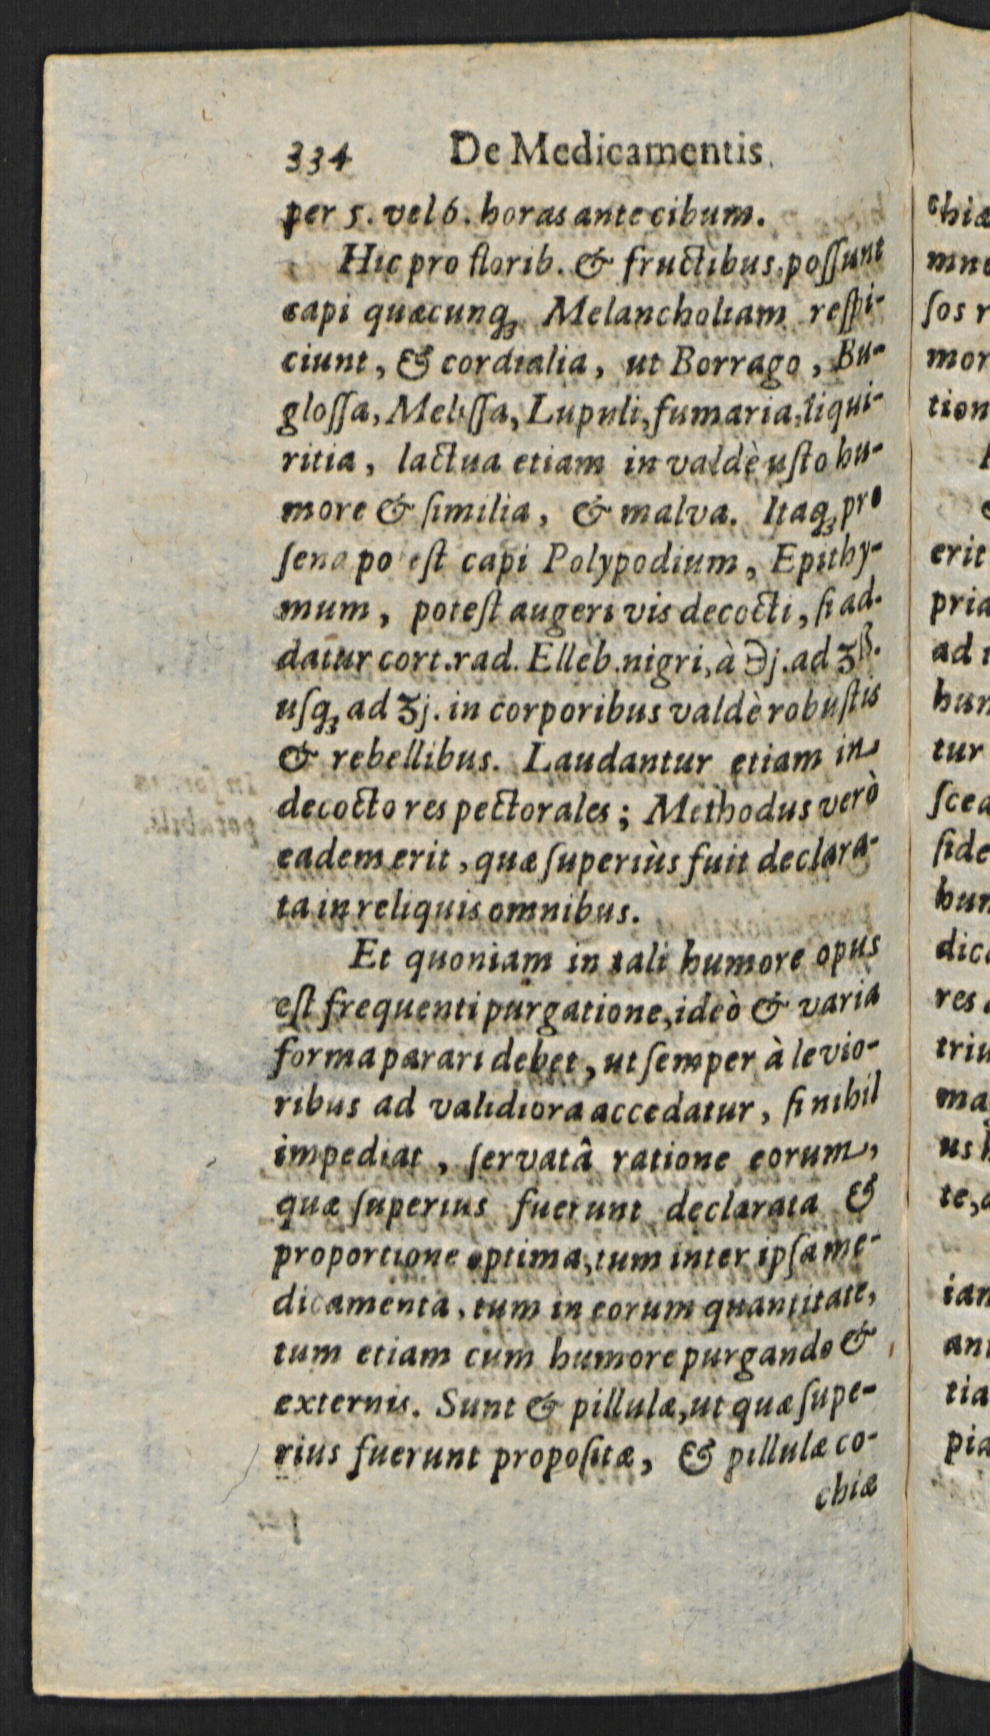 334 De Medicamentis.
per 5. vel 6. horas ante cibum.
Hic pro florib. & fructibus, poſſunt
capi quæcunq; Melancholiam reſpi-
ciunt, & cordialia, ut Borrago, Bu-
gloſſa, Meliſſa, Lupuli, fumaria, liqui-
ritia, lactua etiam in valdè uſto hu-
more & ſimilia, & malva. Itaq; pro
ſena poteſt capi Polypodium, Epithy-
mum, poteſt augeri vis decocti, ſi ad-
datur cort. rad. Elleb. nigri, à ℈j. ad ʒß.
uſq; ad ʒj. in corporibus valdè robuſtis
& rebellibus. Laudantur etiam in
decocto res pectorales; Methodus verò
eadem erit, quæ ſuperiùs fuit declara-
ta in reliquis omnibus.
Et quoniam in tali humore opus
eſt frequenti purgatione, ideò & varia
forma parari debet, ut ſemper à levio-
ribus ad validiora accedatur, ſi nihil
impediat, ſervatâ ratione eorum,
quæ ſuperius fuerunt declarata &
proportione optima, tum inter ipſa me-
dicamenta, tum in eorum quantitate,
tum etiam cum humore purgando &
externis. Sunt & pillulæ, ut quæ ſupe-
rius fuerunt propoſitæ, & pillulæ co-
chiæ
chiæ
ſos r
mor
tion
erit
pria
ad
hum
tur
ſcea
ſide
hum
dica
res
triu
ma
us h
te,
ian
ant
tia
pia